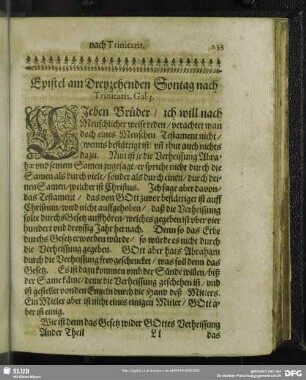 nach Trinitatis.
233
Epistel am Dreyzehenden Sontag nach
Trinitatis. Gal. 3.
LIeben Brüder / ich will nach
Menschlicher weise reden / verachtet man
doch eines Menschen Testament nicht /
wenns bestättiget ist / vñ thut auch nichts
dazu. Nun ist je die Verheissung Abra-
hæ vnd seinem Samen zugesagt / er spricht nicht durch die
Samen als durch viele / sonder als durch einen / durch dei-
nen Samen / welcher ist Christus. Ich sage aber davon /
das Testament / das von GOtt zuvor bestätiget ist auff
Christum / wird nicht auffgehoben / daß die Verheissung
solte durchs Gesetz auffhören / welches gegeben ist vber vier
hundert vnd dreyssig Jahr hernach. Denn so das Erbe
durchs Gesetz erworben würde / so würde es nicht durch
die Verheissung gegeben. GOtt aber hats Abraham
durch die Verheissung frey geschencket / was soll denn das
Gesetz. Es ist dazu kommen vmb der Sünde willen / biß
der Same käme / deme die Verheissung geschehen ist / vnd
ist gestellet von den Engeln durch die Hand deß Mitlers.
Ein Mitler aber ist nicht eines einigen Mitler / GOtt a-
ber ist einig.
Wie ist denn das Gesetz wider GOttes Verheissung
Ander Theil Ll das
SLUB
DFG